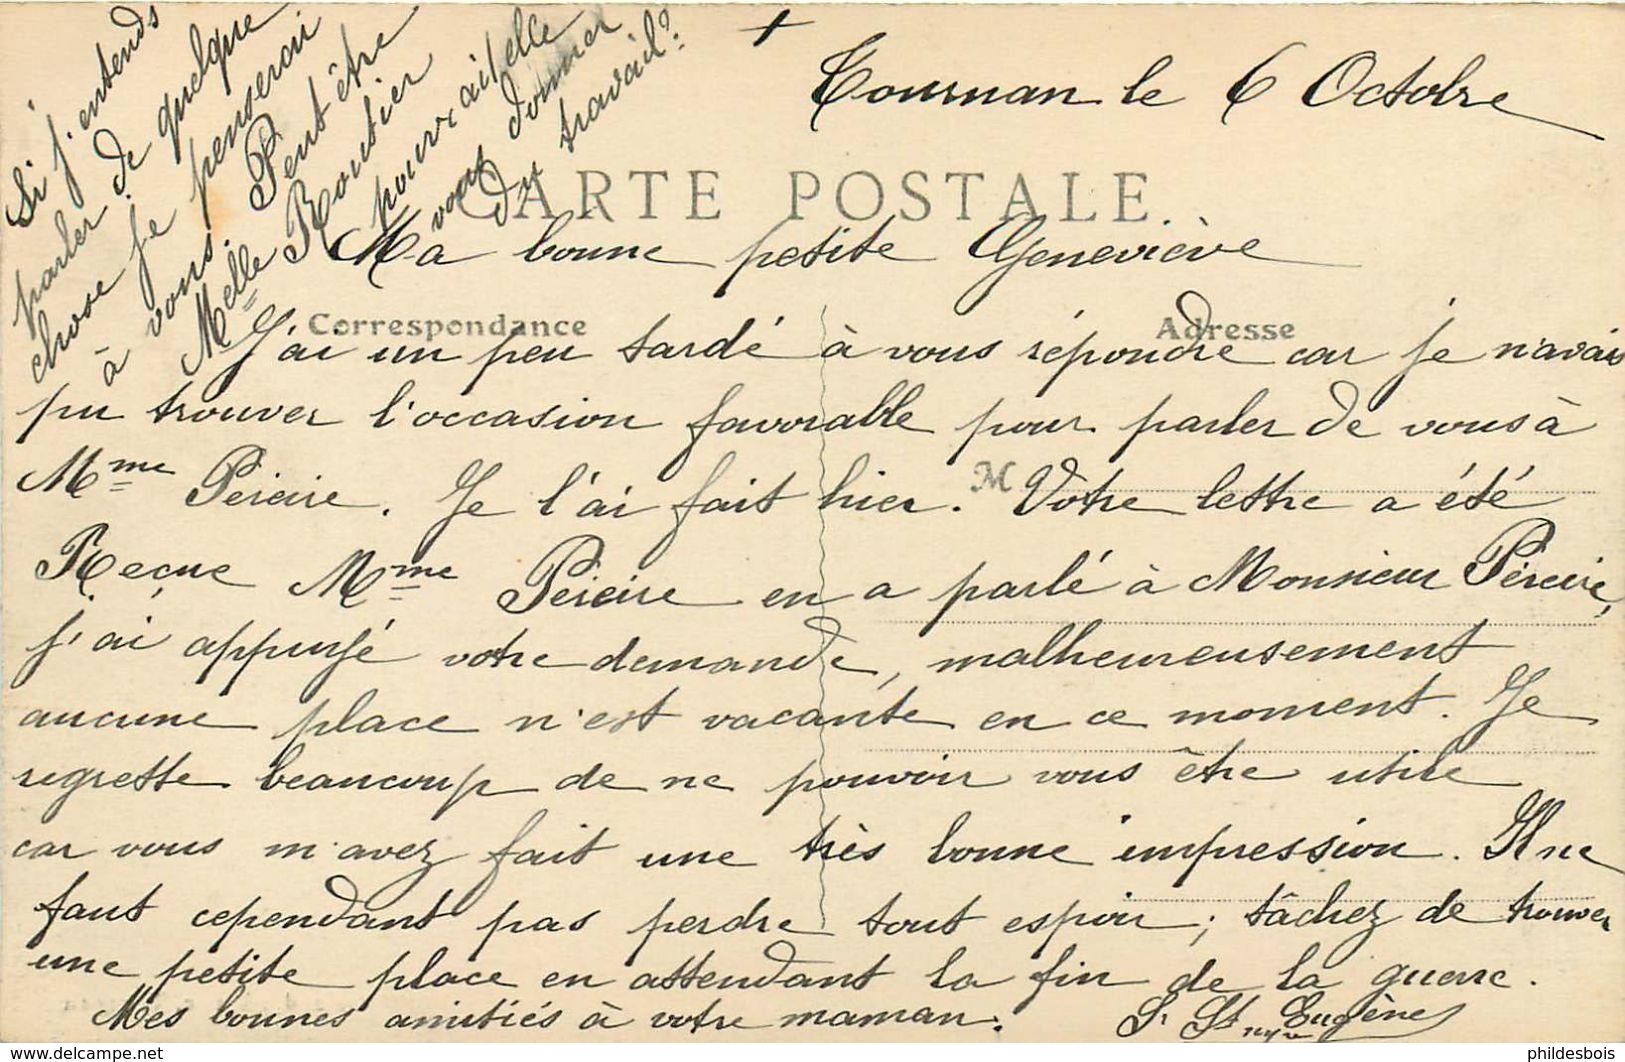 Tournan le 6 Octobre
CARTE POSTALE
Ma bonne petite Geneviève
Correspondance
Adresse
J'ai un peu tardé à vous répondre car je n'avais
pu trouver l'occasion favorable pour parler de vous à
M
Mme Péreire. Je l'ai fait hier. Votre lettre a été
Reçue Mme Péreire en a parlé à Monsieur Péreire,
j'ai appuyé votre demande, malheureusement
aucune place n'est vacante en ce moment. Je
regrette beaucoup de ne pouvoir vous être utile
car vous m'avez fait une très bonne impression. Il ne
faut cependant pas perdre tout espoir; tâchez de trouver
une petite place en attendant la fin de la guerre.
Mes bonnes amitiés à votre maman.
Sr St Eugène
Si j'entends
parler de quelque
chose je penserai
à vous. Peut être
Melle Roustier
pourrait elle
vous donner
du travail?
phildesbois